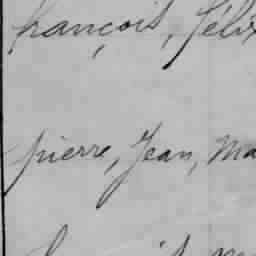 françois, félix
pierre, Jean, Ma